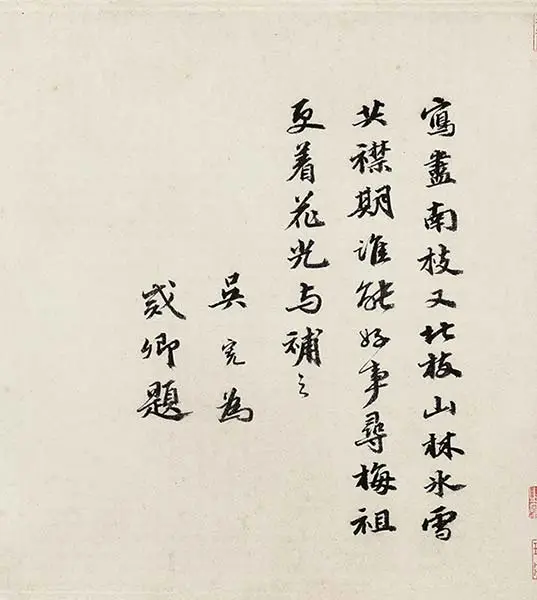 寫盡南枝又北枝山林冰雪
共襟期誰能好事尋梅祖
更着花光与補之
吳寬為
式卿題